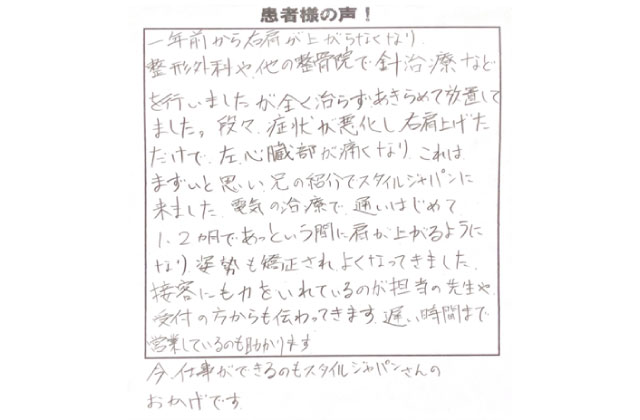 患者様の声！
一年前から右肩が上がらなくなり、
整形外科や他の整骨院で針治療など
を行いましたが全く治らず、あきらめて放置して
ました。段々、症状が悪化し右肩上げた
だけで、左心臓部が痛くなり、これは
まずいと思い、兄の紹介でスタイルジャパンに
来ました。電気の治療で、通いはじめて
1、2ヵ月であっという間に肩が上がるように
なり、姿勢も矯正され、よくなってきました。
接客にも力をいれているのが担当の先生や、
受付の方からも伝わってきます。遅い時間まで
営業しているのも助かります
今、仕事ができるのもスタイルジャパンさんの
おかげです。